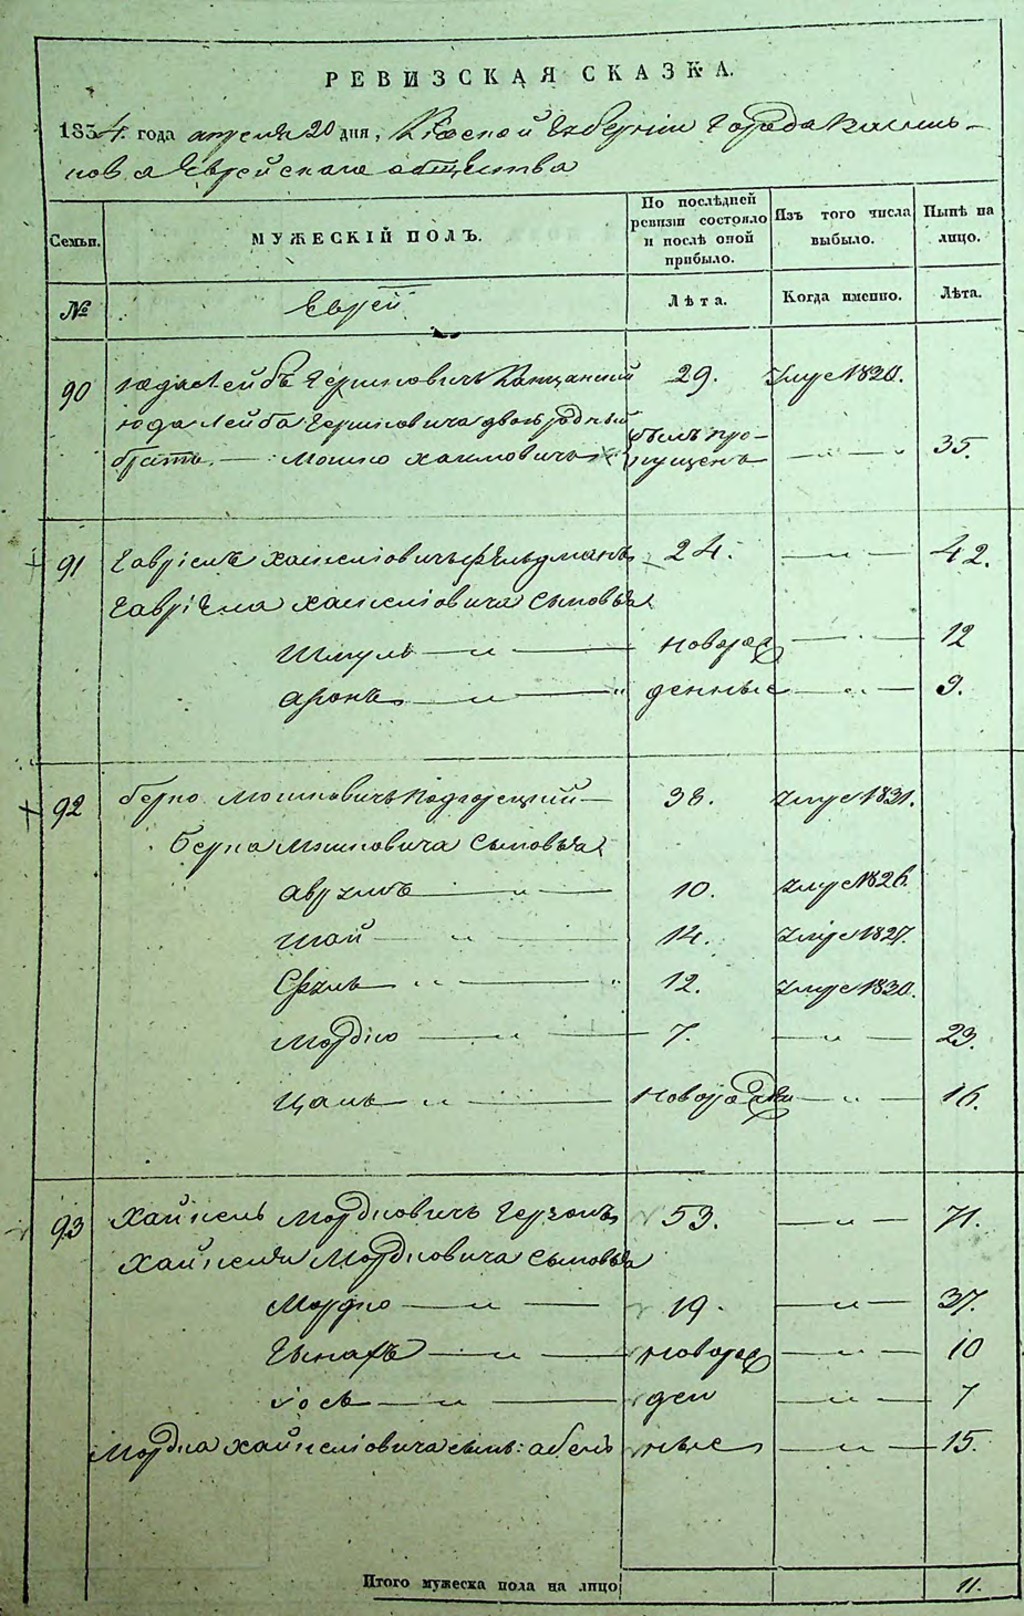 РЕВИЗСКАЯ СКАЗКА.
1834. года апреля 20 дня, Киевской Губерніи Города
Еврейскаго общества
Семьи. МУЖЕСКІЙ ПОЛЪ. По послѣдней ревизіи состояло и послѣ оной прибыло. Изъ того числа выбыло. Нынѣ на лицо.
№ Еврей Лѣта. Когда именно. Лѣта.
90 Юда Лейбъ Гершковичъ 29. умре 1820.
Юда Лейба Гершковича двоюродный
братъ — Мошко Хаимовичъ былъ пропущенъ — „ — 35.
91 Гавріель Хаскеліовичъ Фельдманъ 24. — „ — 42.
Гавріела Хаскеліовича сыновья
Шмуль — „ — новорож — „ — 12
Аронъ — „ — денные — „ — 9.
92 Берко Мошковичъ Подгорецкий — 38. умре 1831.
Берка Мошковича сыновья
Аврумъ — „ — 10. умре 1826.
Шай — „ — 14. умре 1827.
Сруль — „ — 12. умре 1830.
Мордко — „ — 7. — „ — 23.
— „ — — „ — 16.
93 Хайкель Мордковичъ Герзонъ 53. — „ — 71.
Хайкеля Мордковича сыновья
Мордко — „ — 19. — „ — 37.
— „ — новорож — „ — 10
Іось — „ — ден — „ — 7
Мордка Хайкеліовича сынъ: ные — „ — 15.
Итого мужеска пола на лицо 11.